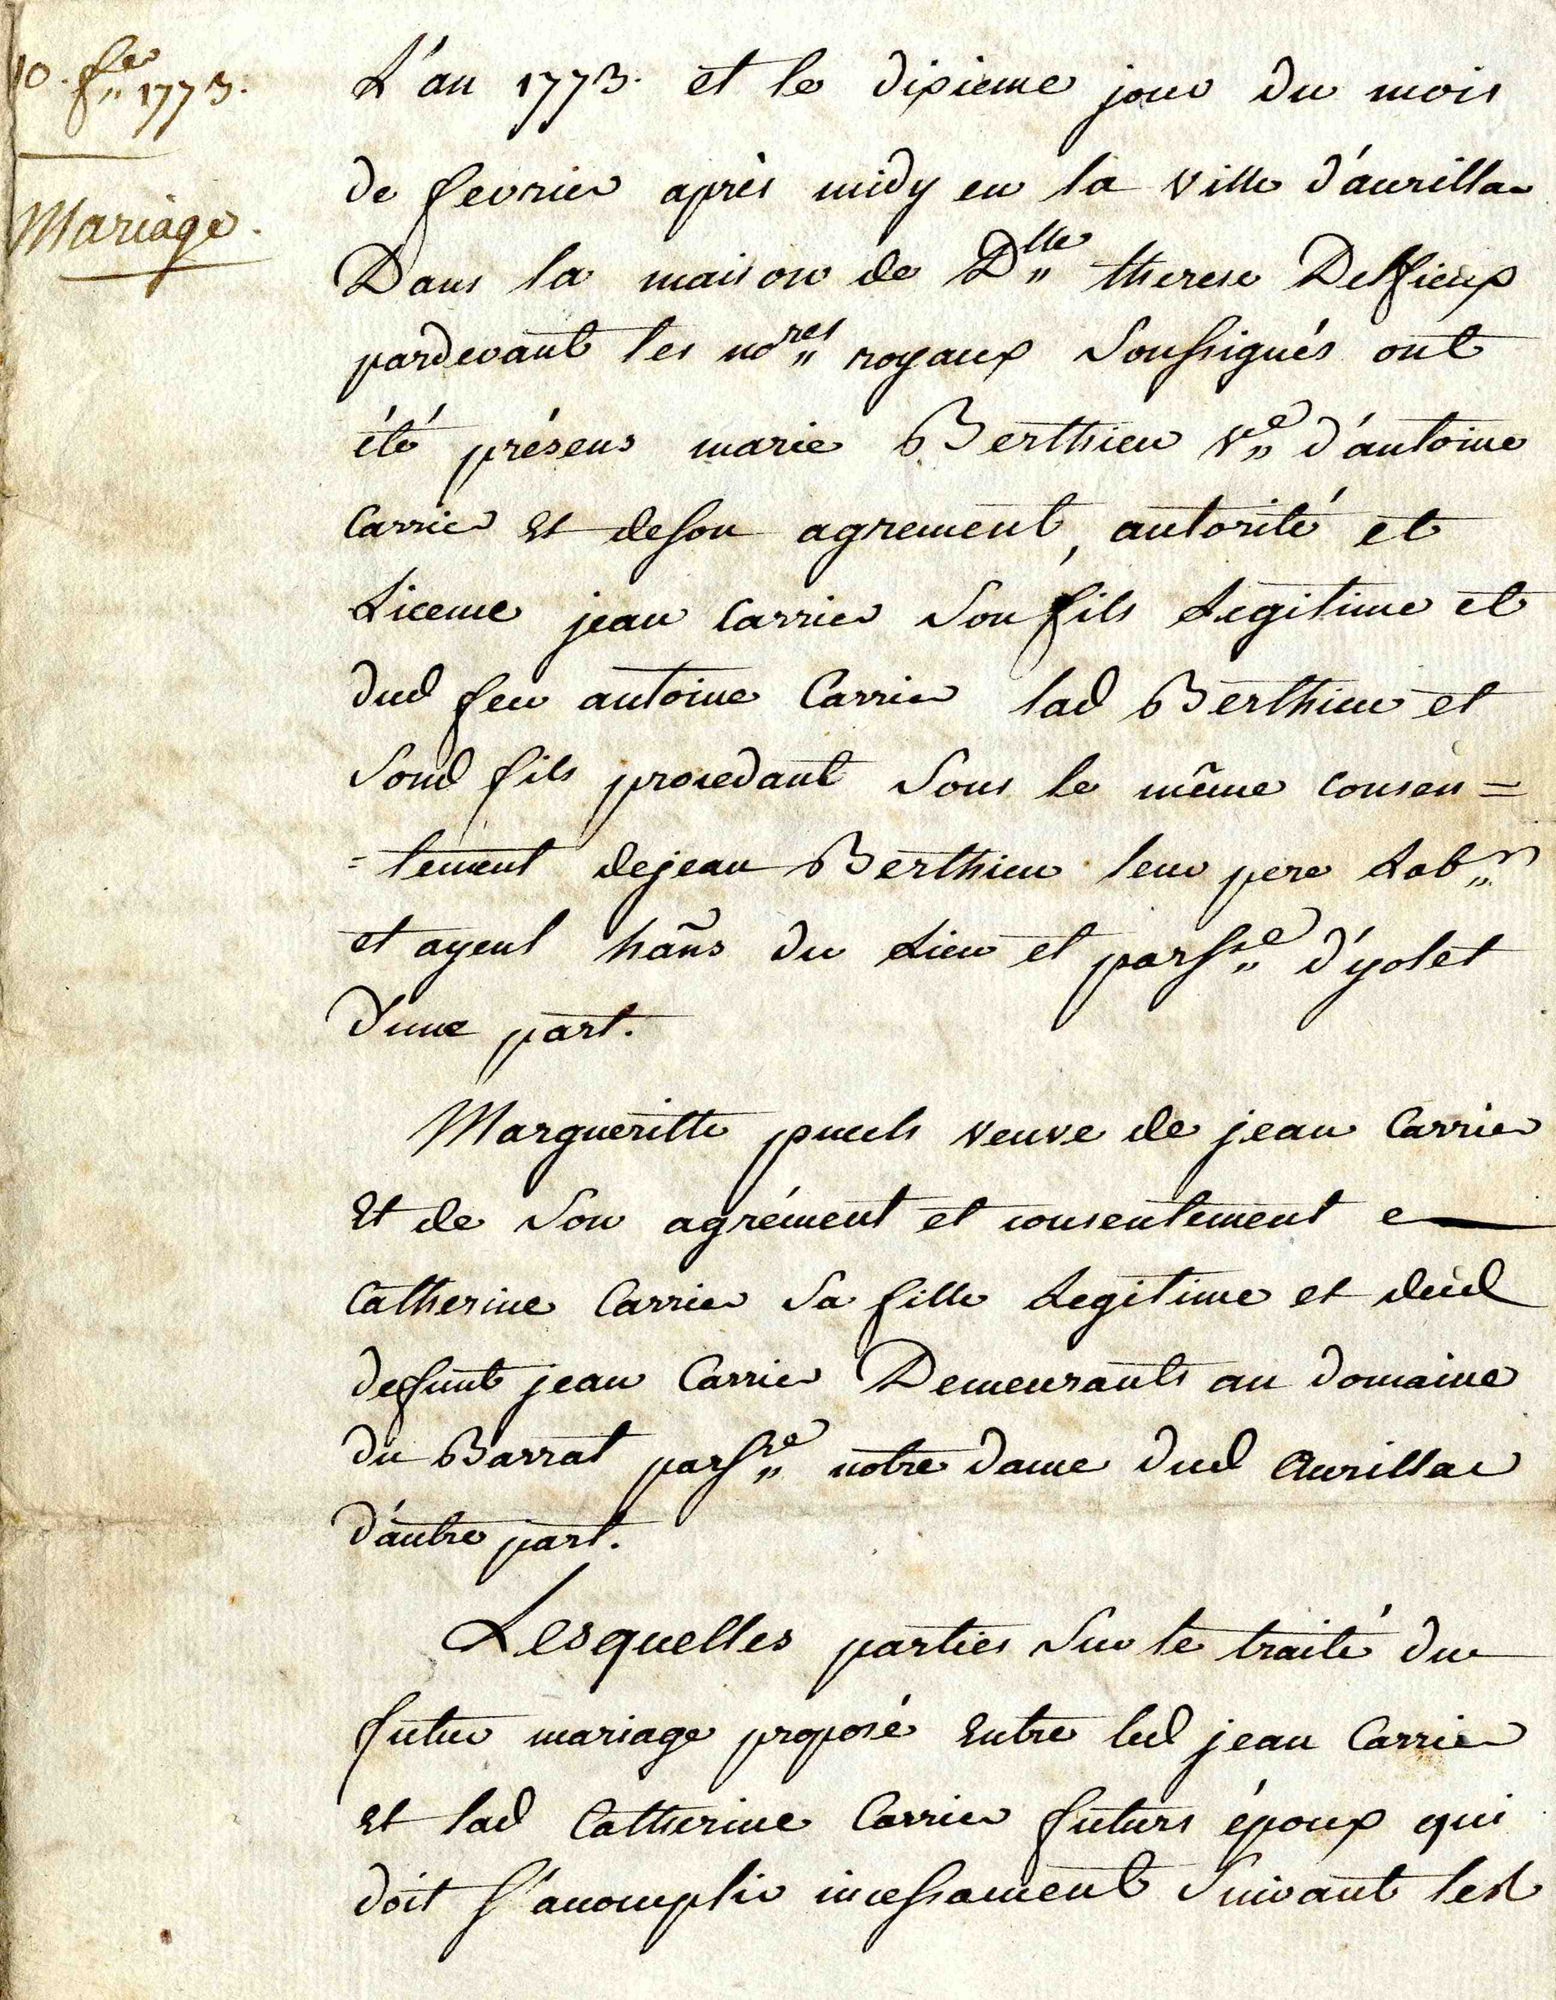 10. fer 1773.
Mariage.
L'an 1773. et le dixieme jour du mois
de fevrier après midy en la ville d'aurillac
Dans la maison de Dlle therese Delfieux
pardevant les nores royaux Soussignés ont
été présens marie Berthieu Ve d'antoine
Carrier Et deson agrement, autorité et
Licence jean Carrier Son fils Legitime et
dud feu antoine Carrier lad Berthieu et
Sond fils procedant Sous le même consen=
=tement dejean Berthieu leur pere Labr
et ayeul hãns du Lieu et parsse d'yolet
d'une part.
Margueritte puech veuve de jean Carrier
Et de Son agrément et consentement
Catherine Carrier Sa fille Legitime et dud
defunt jean Carrier Demeurants au domaine
du Barrat parsse notre dame dud Aurillac
d'autre part.
Lesquelles parties Sur le traité du
futur mariage proposé Entre led jean Carrier
Et lad Catherine Carrier futurs époux qui
doit s'acomplir incessament Suivant les